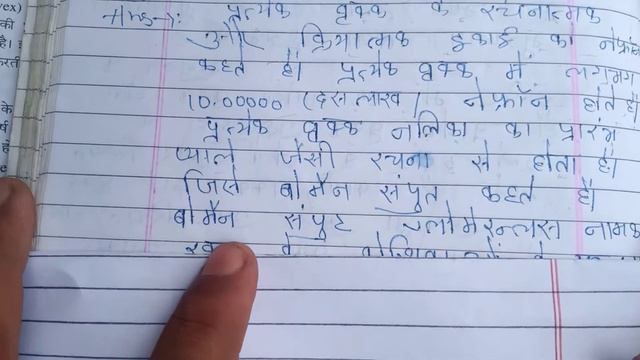 Ans→: प्रत्येक वृक्क के रचनात्मक
और क्रियात्मक इकाई को नेफ्रॉन
कहते हैं। प्रत्येक वृक्क में लगभग
10.00000 (दस लाख) नेफ्रॉन होते हैं।
प्रत्येक वृक्क नलिका का प्रारंभ
प्याले जैसी रचना से होता है।
जिसे बोमैन संपुत कहते हैं।
बोमैन संपुट ग्लोमेरुलस नामक